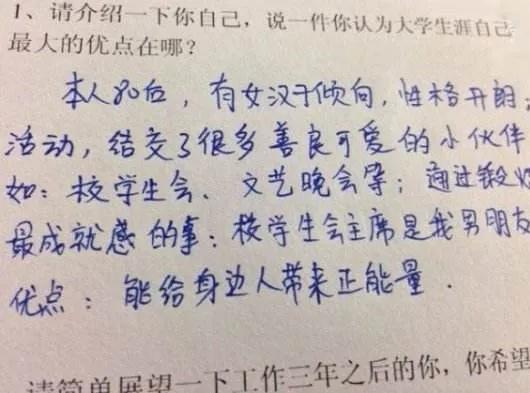 1、请介绍一下你自己,说一件你认为大学生涯自己
最大的优点在哪?
本人90后,有女汉子倾向,性格开朗,
活动,结交了很多善良可爱的小伙伴
如:校学生会、文艺晚会等;通过锻炼
最成就感的事:校学生会主席是我男朋友
优点:能给身边人带来正能量.
请简单展望一下工作三年之后的你,你希望